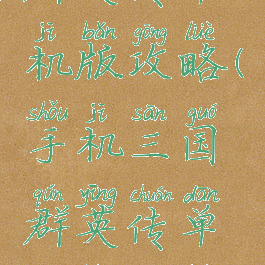 jī bǎn gōng lüè
机版攻略(
shǒu jī sān guó
手机三国
qún yīng chuán dān
群英传单